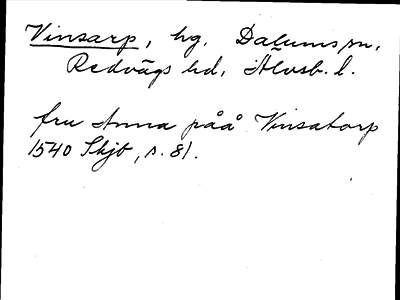 Vinsarp, hg. Dalums sn,
Redvägs hd, Älvsb. l.
fru Anna påå Vinsatorp
1540 Skjb, s. 81.